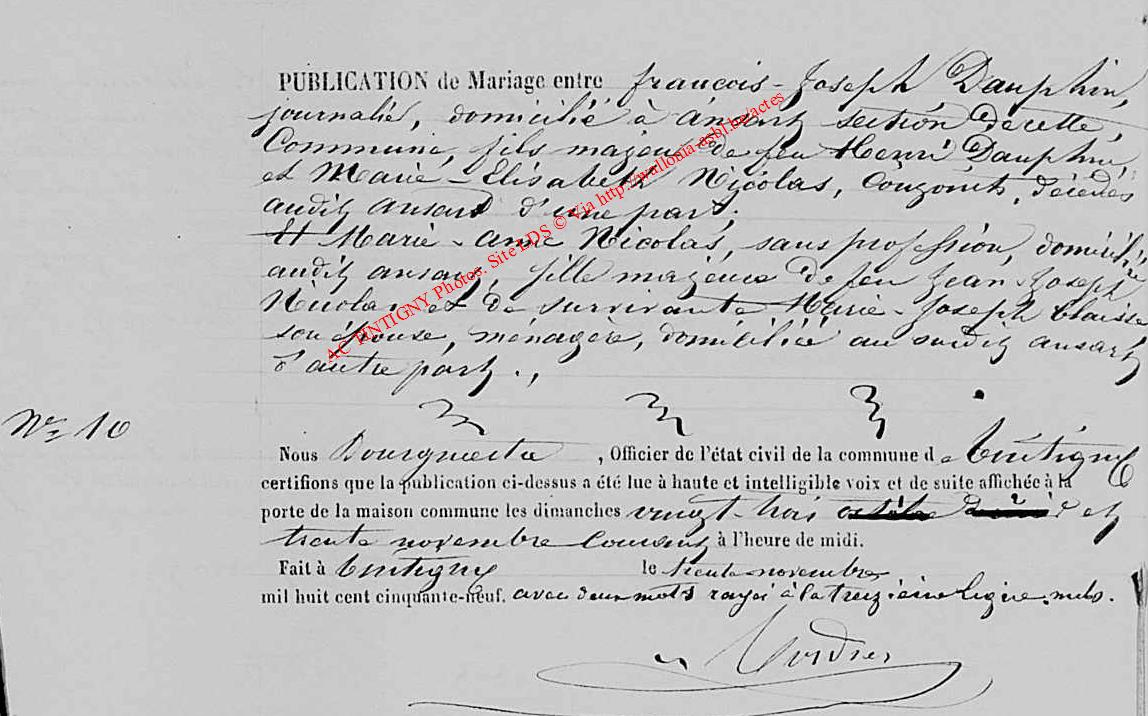 PUBLICATION de Mariage entre françois-Joseph Dauphin,
journalié, domicilié à ansart section decette,
Commune, fils majeur de feu Henri Dauphin,
et Marie-Elisabeth Nicolas, Conjoints, décédés
audit ansart d'une part.
Et Marie-anne Nicolas, sans profession, domicilié
audit ansart, fille majeure de feu Jean-Joseph
Nicolas et de survivante Marie-Joseph blaise
son épouse, ménagère, domiciliée au susdit ansart
d'autre part.,
AC TINTIGNY Photos. Site LDS © Via http://wallonia-asbl.be/actes
Nº 10
Nous Bourgmestre, Officier de l'état civil de la commune de Tintigny
certifions que la publication ci-dessus a été lue à haute et intelligible voix et de suite affichée à la
porte de la maison commune les dimanches vingt-trois et
trente novembre Courant à l'heure de midi.
Fait à Tintigny le trente novembre
mil huit cent cinquante-neuf. avec deux mots rayés à la treizième ligne. nuls.